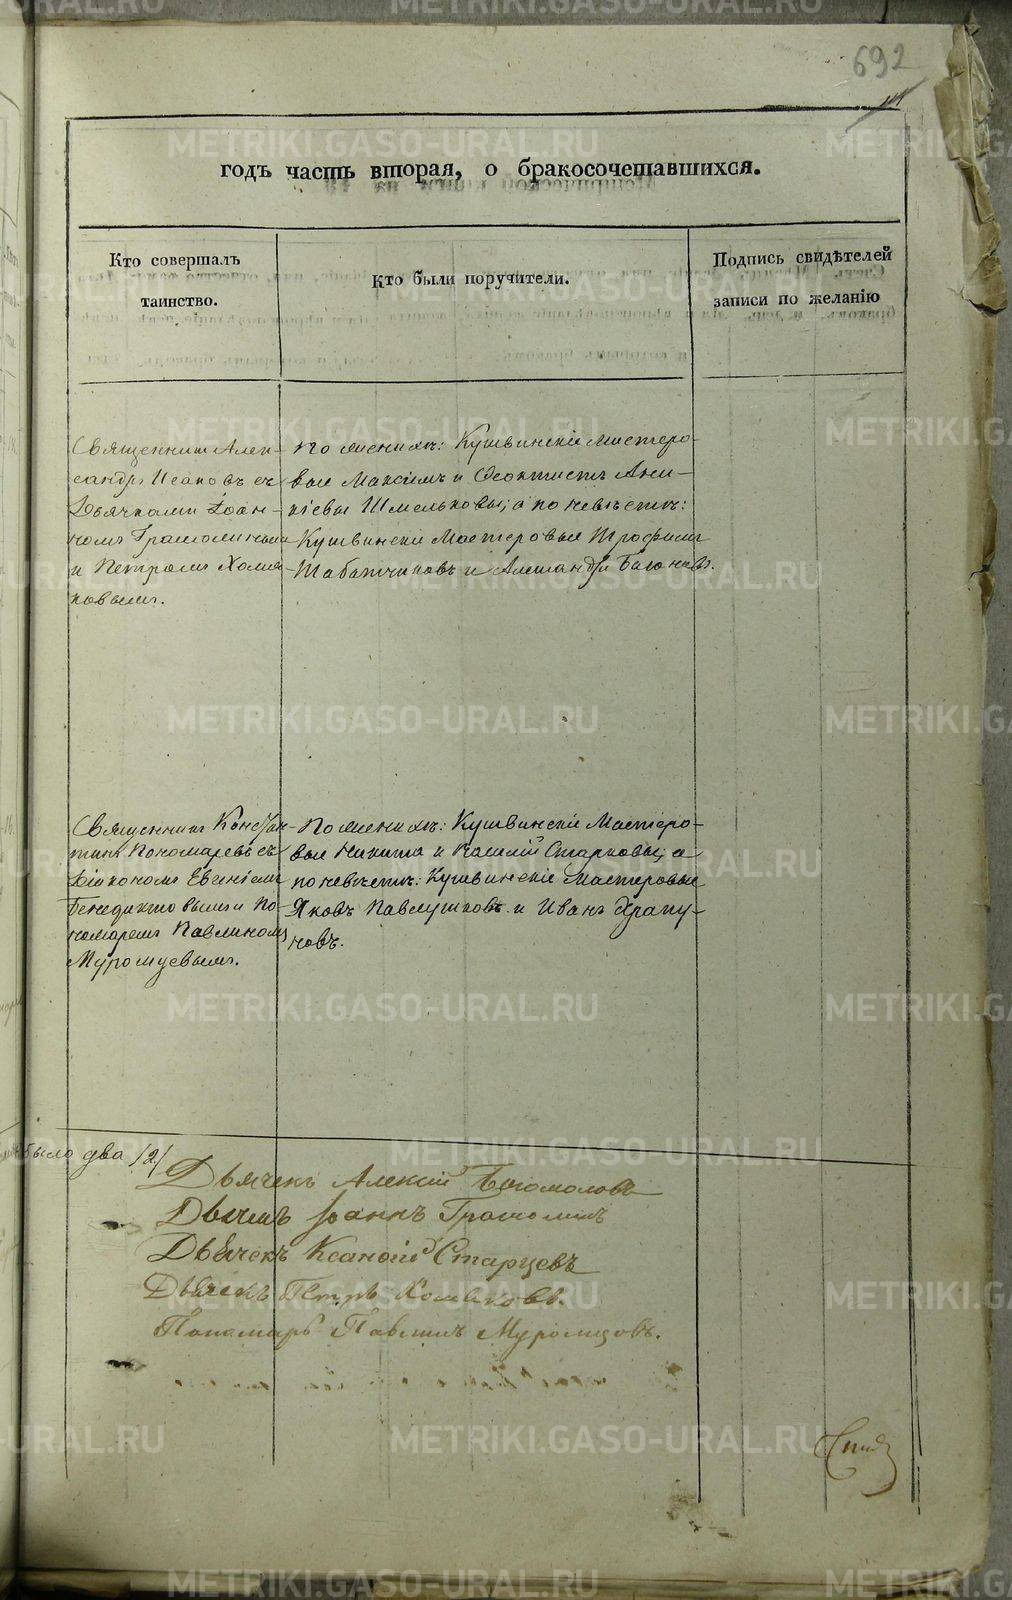 692
годъ часть вторая, о бракосочетавшихся.
Кто совершалъ
таинство.
Кто были поручители.
Подпись свидѣтелей
записи по желанію
Священникъ Алек-
сандръ Исаковъ съ
Дьячками Іоан-
номъ Грамолинымъ
и Петромъ Хомя-
ковымъ.
По женихѣ: Кушвинскіе Мастеро-
вые Максимъ и Ѳеоктистъ Ани-
кіевы Шмельковы; а по невѣстѣ:
Кушвински Мастеровые Трофимъ
Табатчиковъ и Александръ
Священникъ Констан-
тинъ Пономаревъ съ
Діакономъ Евгеніемъ
Бенедиктовымъ и По-
номаремъ Павлиномъ
Муромцевымъ.
По женихѣ: Кушвинскіе Мастеро-
вые Никита и Василій Старковы; а
по невѣстѣ: Кушвинскіе Мастеровые
Яковъ Павлушковъ и Иванъ Храпу-
новъ.
было два /2/
Дьячекъ Алексій Богомоловъ
Дьячекъ Іоаннъ Грамолинъ
Дьячекъ Ксанѳій Старцевъ
Дьячекъ Петръ Хомяковъ.
Пономарь Павлинъ Муромцовъ.
METRIKI.GASO-URAL.RU